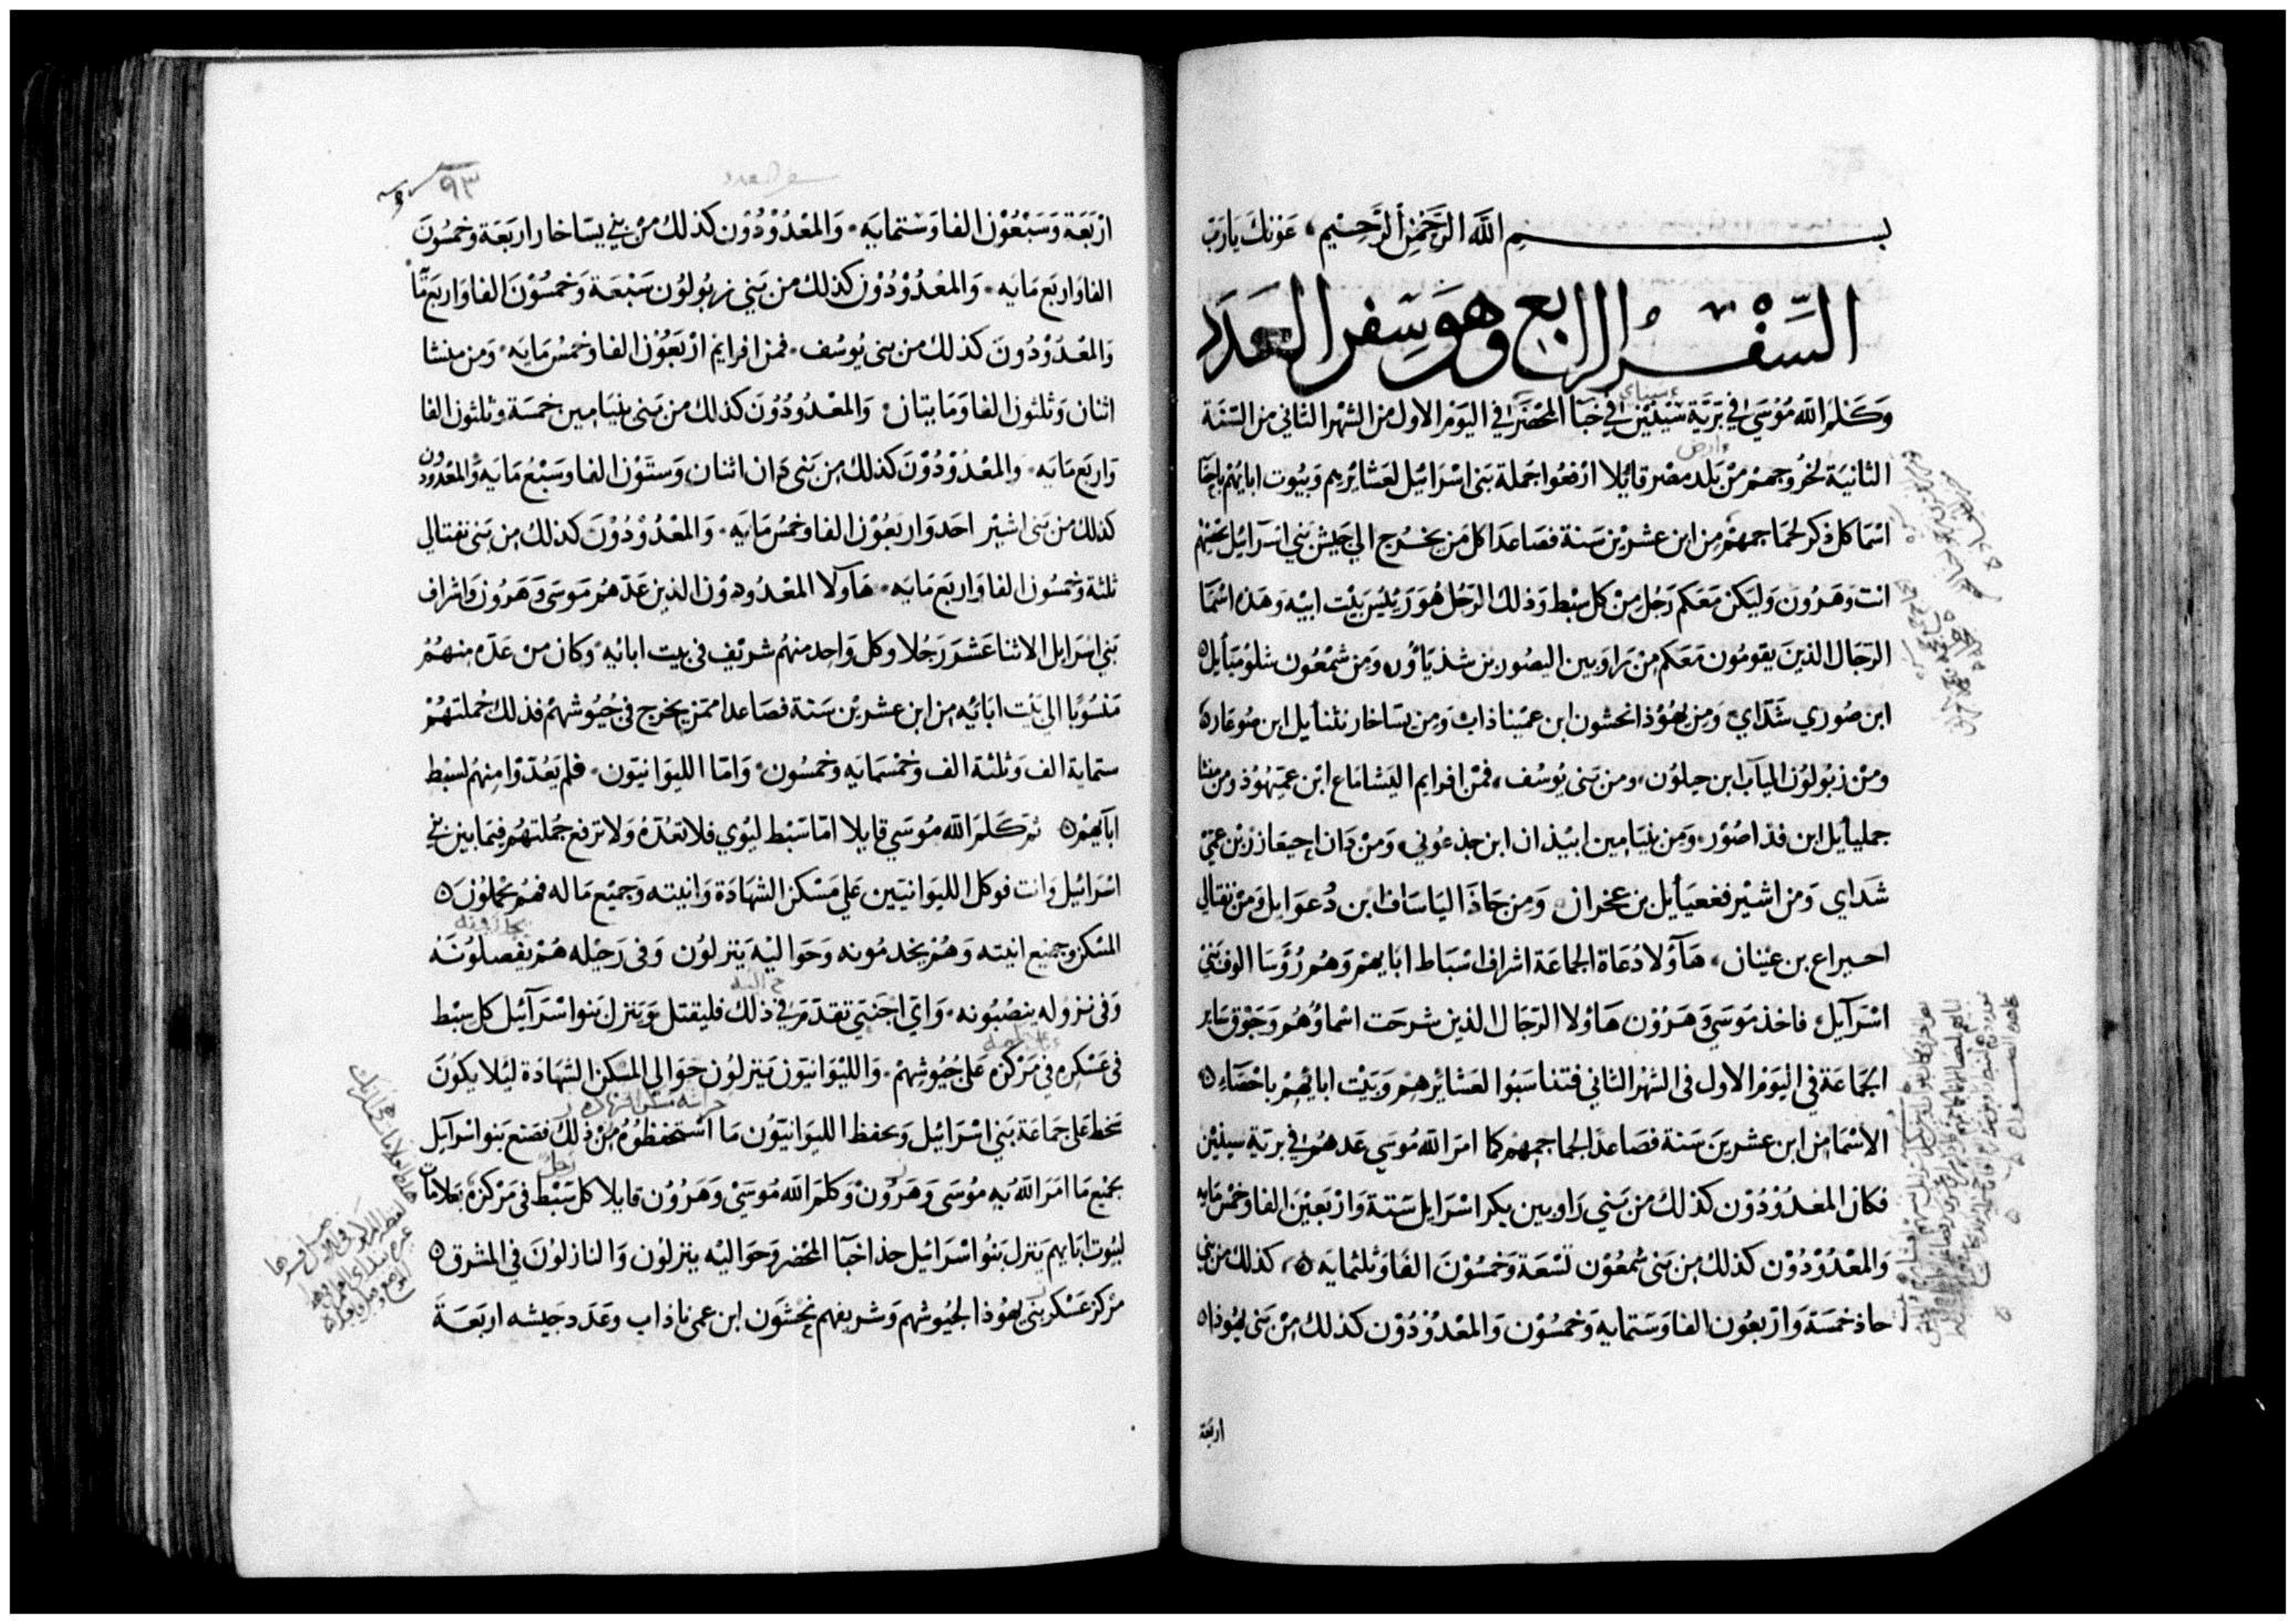 بسم الله الرحمن الرحيم، عونك يا رب
السفر الرابع وهو سفر العدد
وَكَلم الله مُوْسَي في برّية سَيْنين في خبا المحضر في اليَوْم الاول من الشهر الثاني من السّنَة
سيناي
وارض
الثانيَة لخرُوجهمْ منْ بَلد مصْر قايُلا ارْفعُوا جملة بَني اسْرَائيل لعَشائرهم وَبيُوت ابايهم باحصَا
اسْمَا كل ذكر لجمَاجمهمْ من ابن عشريْن سَنة فصَاعدَا كل مَن يخرُج الي جَيش بَني اسرَائيل تحصيهم
انت وَهَرُون وَليَكن مَعَكم رَجُل منْ كل سبْط وَذلك الرجُل هُوَ رَئيْس بَيْت ابيْه وَهَذه اسْمَا
الرّجَال الذينَ يقومُون مَعَكم منْ رَاوبين اليصُور بن شذيَاوُر وَمن شمْعُون شلوْميَأيل
ابن صُوري شَدّاي وَمن يهُوْذا نحشون ابن عمّيناذاب وَمن يسَاخار نثنأيل ابن صُوغار
ومنْ زبُولوُن الياب ابن حيلوُن، ومن بَنى يُوسُف، فمنْ افرايم اليَشامَاع ابْن عميهُوْذ ومن منشا
جمليأيل ابن فذاصُوْر وَمن بنيَامين ابيْذان ابن جذعُوني وَمنْ دَان احيعَازر بْن عمّيْ
شَدَاي وَمنْ اشيْر فغعيَأيل بن عخران وَمن جَاذَ اليَاسَاف ابن دُعوَايل وَمنْ نفتالي
احيراع بن عيْنان، هَآوُلا دُعَاة الجَماعَة اشراف اسْباط ابَايهمْ وَهُمْ رُؤسَا الوف بَني
اسْرَآيل فاخذ مُوسَي وَهَرُوْن هَاوْلا الرّجَال الذين شرحَت اسْماوُهُم وَجَوّق سَاير
الجَمَاعَة في اليَوْم الاول فى الشهْر الثاني فتنَاسَبُوا لعَشائرهمْ وَبَيْت ابائهمْ باحْصَاء
الأسْمَا من ابن عشرينَ سَنة فصَاعدًا لجماجمهمْ كما امَرَ الله مُوسَي عَدهُمْ في بريّة سينَيْن
فكان المعْدُوْدُوْن كذلكَ منْ بَني رَاوبين بكر اسْرَايل سَتة وَارْبَعيْن الفا وخمْس مَايه
وَالمعْدُوْدُوْن كذلك من بَنى شمعُوْن تسْعَة وَخمسُوْنَ الفَا وَثلثمايَه، كذلك من بَني
جاذ خمسَة وَارْبعُون الفا وَسَتمايه وَخمسُوْن وَالمعْدُوْدُوْن كذلك منْ بَنى يهُوذا
اربعة
٩٣
سفر العدد
ارْبَعَة وَسَبْعُوْن الفا وَستمايَه، وَالمعْدُوْدُوْن كذلك منْ بني يسَاخار اربَعَة وخمسُونَ
الفا وَاربَع مَايَه، وَالمعْدُوْدُوْن كذلك من بَني زبولوُن سَبْعَة وَخمسُوْنَ الفا وَاربَع مَايَه
وَالمعْدُوْدُونَ كذلك من بنى يُوسُف، فمن افرايم ارْبَعُوْن الفا وخمسُ مَايَه، وَمن منشا
اثنان وَثلثون الفا وَمَايتان، وَالمعْدُودُوْنَ كذلك من بَنى بنيَامين خمسَة وثلثون الفا
وَاربَع مَايَه، وَالمعْدُوْدُوْنَ كذلك من بَنى دَان اثنان وَستوْن الفا وسَبْعُ مَايَه وَالمعْدودون
كذلك من بَنى اشيْر احَد وَاربَعُوْن الفا وخمسُ مَايَه، وَالمعْدُوْدُوْنَ كذلك من بَني نفتالي
ثلثة وَخمسُون الفا وَاربَع مَايَه، هَآولا المعْدُودوْن الذين عَدّهمْ مُوسَى وَهَرُون وَاشراف
بَني اسْرَايل الاثنا عَشَر رَجُلا وكل وَاحد منهُم شريْف في بيت ابائه، وكان من عَدّه منهُمْ
مَنسُوبًا الي بَيْت ابَائه من ابن عشريْن سَنة فصَاعدا ممّن يخرج في جُيُوشهمْ فذلك جُملتهُمْ
ستماية الف وَثلثة الف وَخمْسمَايه وخمسُون، وَامّا الليوَانيّون، فلم يعُدّوْا منهُم لسبْط
ابآيهمْ ثم كَلمَ الله مُوسَي قايلا امّا سَبْط ليْوي فلا تعُدّهُ وَلا ترفع جُملتهُمْ فيمَا بين بني
اسْرَائيل وَانت فوكل الليوَانيّين عَلي مَسْكن الشهَادَة وَانيته وَجميْع مَا له فهُمْ يحملوْنَ
المسْكن وجميْع انيته وَهُمْ يخدمُونه وَحَواليْه يَنزلوُن وَفى رَحيْله هُمْ يفصلوُنَهُ
وَفى نزوله ينصْبُونه، وَايّ اجْنَبيّ تقدّمَ في ذلك فليقتل وَيَنزل بَنوا اسْرَآئيل كل سبْط
في عَسْكره في مَرْكزه عَلي جُيُوشهمْ، وَالليْوَانيّون يَنزلوُن حَوَالي المسْكن الشهَادَة ليُلا يكُونَ
سخط عَلى جمَاعَة بَني اسْرَائيل وَيحفظ الليوَانيّوُن مَا اسْتحفظوُهُ منْ ذلك فصَنع بَنوا اسْرَآيل
بجميْع مَا امَرَ الله به مُوسَى وَهَرُوْن وَكلمَ الله مُوسَيْ وَهَرُوْن قايلا كل سَبْط في مَرْكزه بعَلامَات
لبيُوت ابَايهم يَنزل بَنُوا اسْرَائيل حذا خبَآ المحْضر وَحوَاليْه ينزلوُن وَالنازلوُنَ في المشرق
مَرْكز عَسْكر بَنى يهُوْذا لجيُوشهم وَشريفهم نحشَوَن ابن عمّيناذاب وعَدَد جَيشه اربَعَةَ